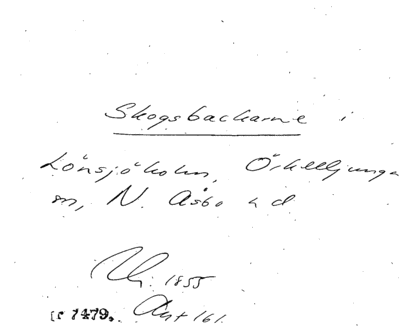 Skogsbackarne i
Lönsjöholm, Örkelljunga
sn, N. Åsbo hd
1855
1479. Ant 161.